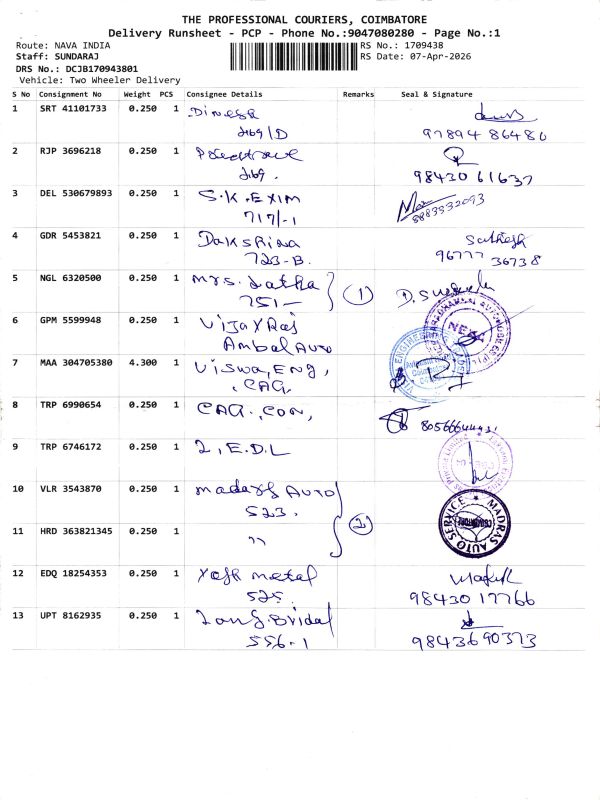 THE PROFESSIONAL COURIERS, COIMBATORE
Delivery Runsheet - PCP - Phone No.:9047080280 - Page No.:1
Route: NAVA INDIA
RS No.: 1709438
Staff: SUNDARAJ
RS Date: 07-Apr-2026
DRS No.: DCJB170943801
Vehicle: Two Wheeler Delivery
S No Consignment No Weight PCS Consignee Details Remarks Seal & Signature
1 SRT 41101733 0.250 1 Dinesh
97894 86480
2 RJP 3696218 0.250 1
98430 61637
3 DEL 530679893 0.250 1 S.K.EXIM
717/-1
4 GDR 5453821 0.250 1 Dakshina Sathesh
723-B. 96777 36738
5 NGL 6320500 0.250 1 Mrs. Latha
751- 1
6 GPM 5599948 0.250 1 Vijay Raj
Ambal Auto
7 MAA 304705380 4.300 1 Viswa, Eng,
CAG
8 TRP 6990654 0.250 1 CAG. Con,
9 TRP 6746172 0.250 1 2, E.D.L
10 VLR 3543870 0.250 1 Madays Auto
523. 2
11 HRD 363821345 0.250 1 "
MADRAS AUTO SERVICE
12 EDQ 18254353 0.250 1 metal
525. 98430 17766
13 UPT 8162935 0.250 1 Bridal
556-1 9843690373